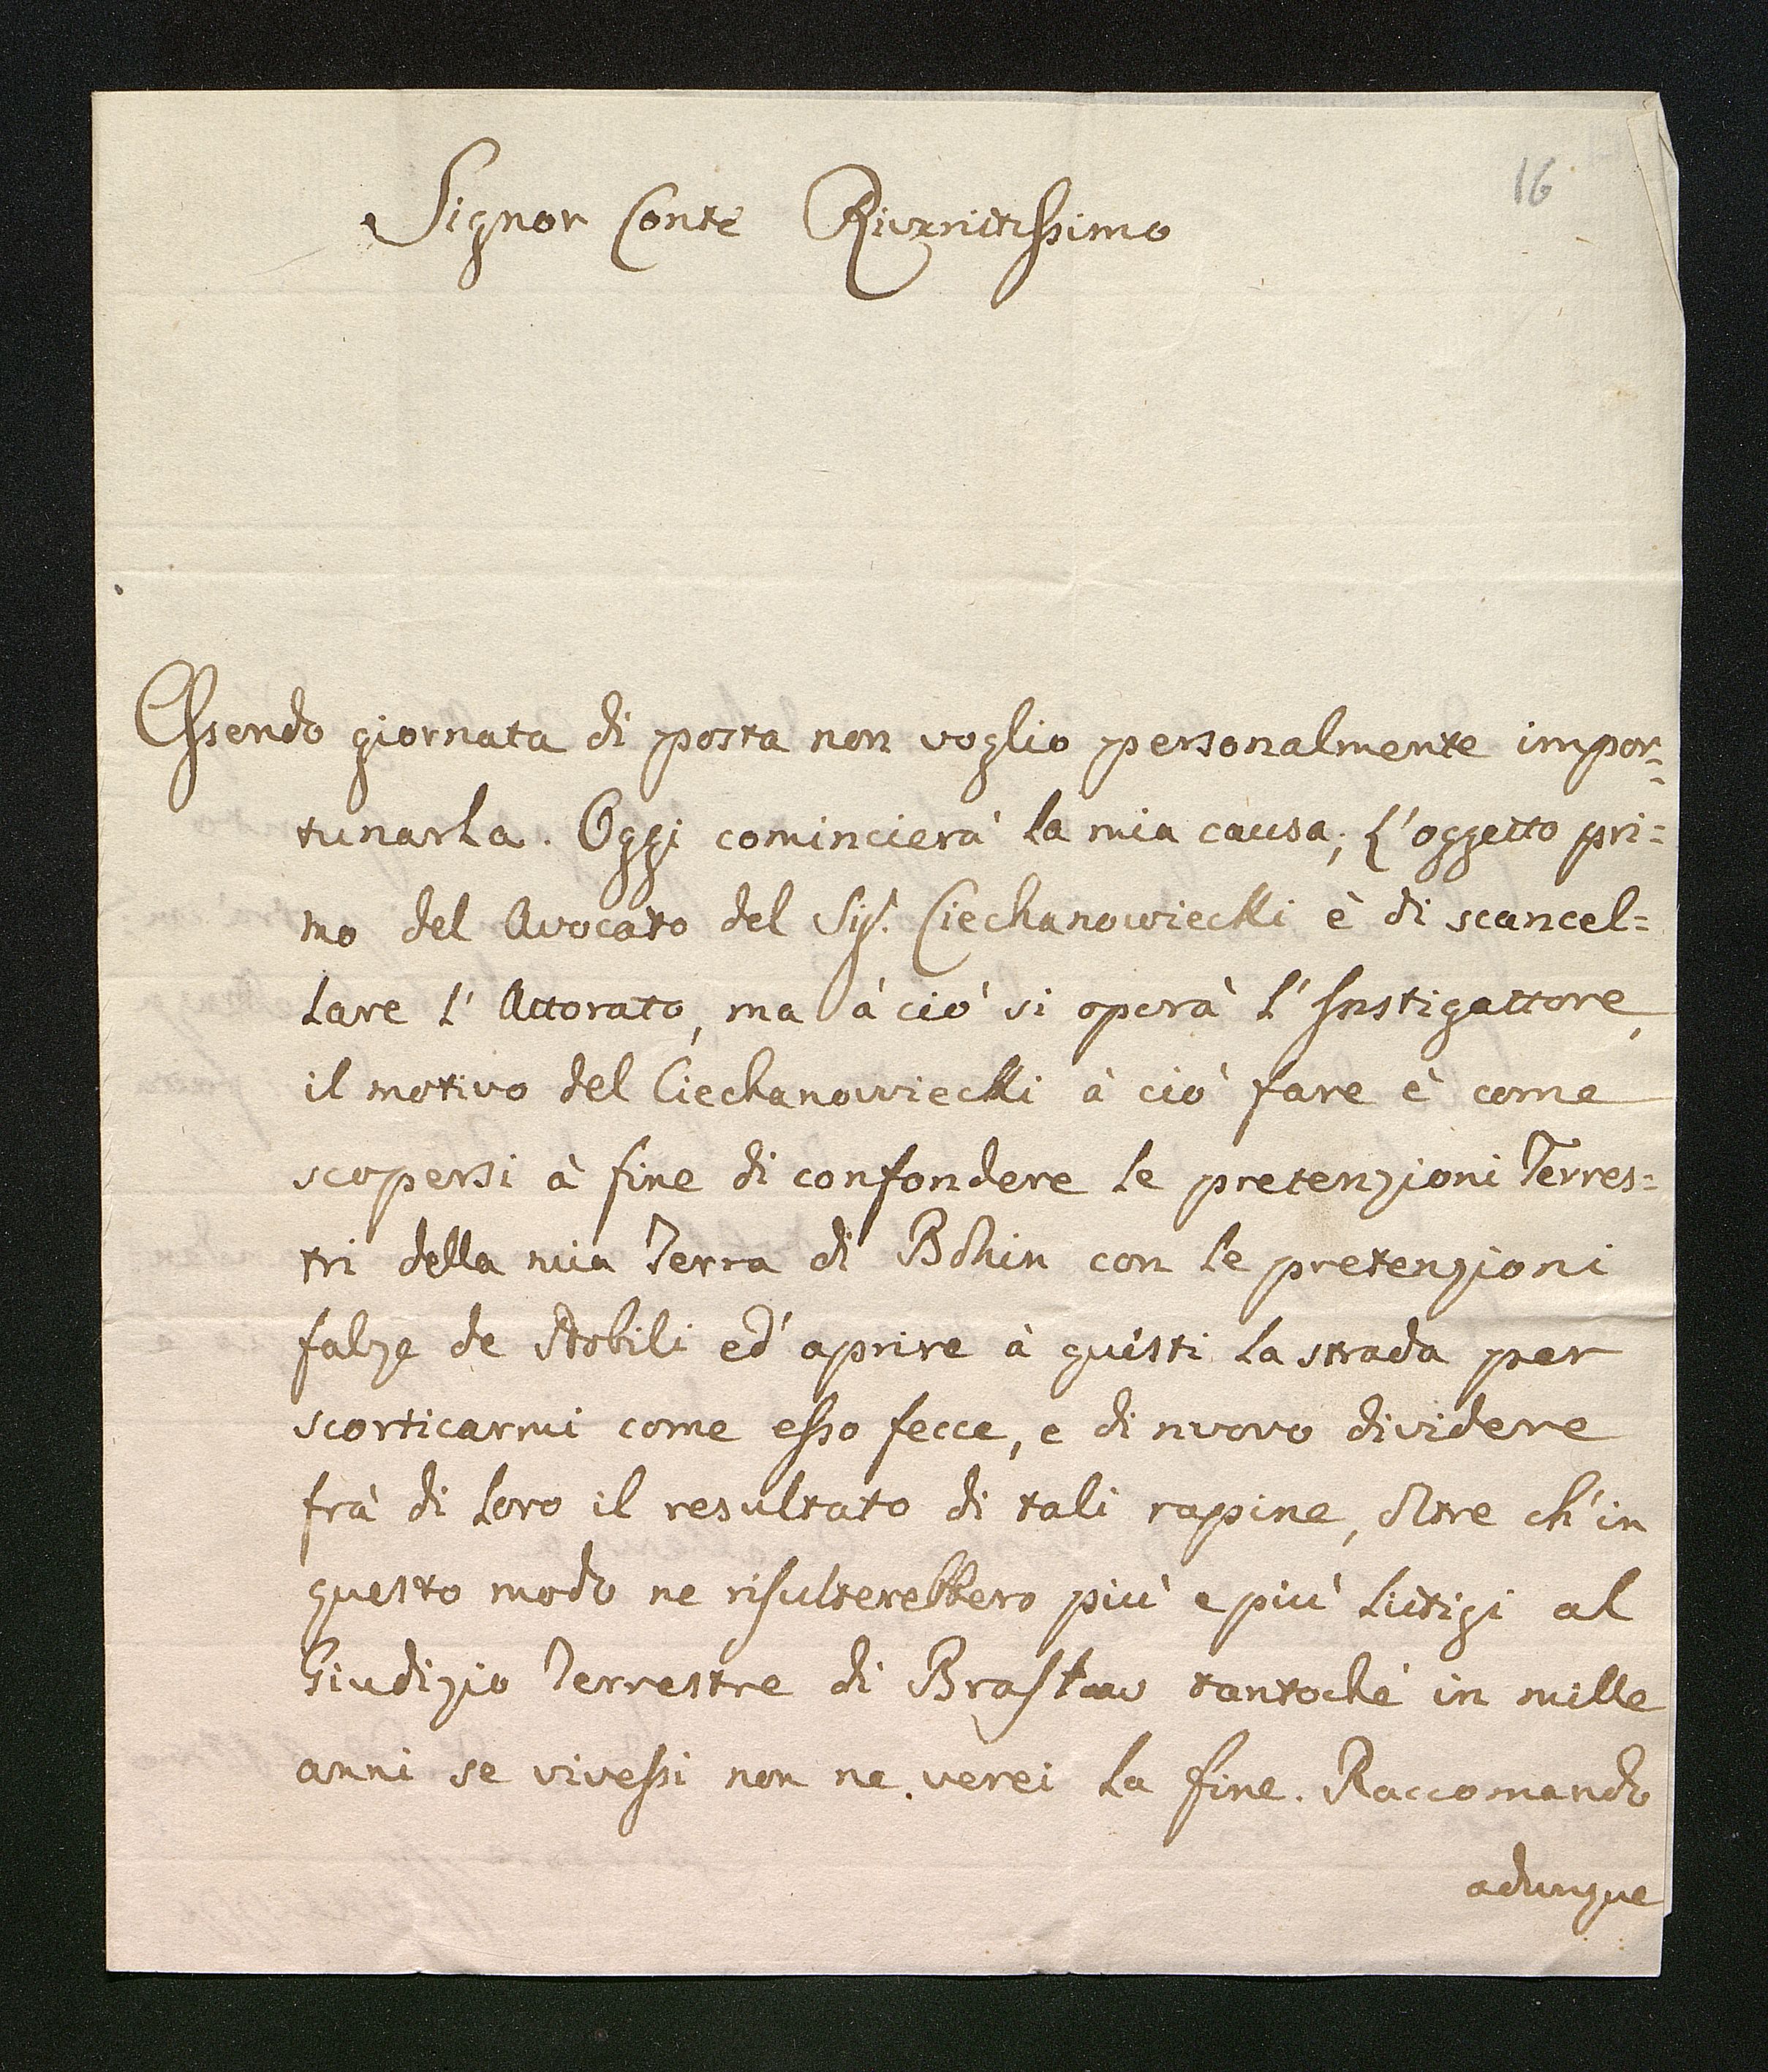 16
Signor Conte Riveritissimo
Essendo giornata di posta non voglio personalmente impor=
tunarla. Oggi comincierà la mia causa; L'oggetto pri=
mo del Avocato del Sig. Ciechanowiecki è di scancel=
lare l' Attorato, ma à ciò si operà l' Instigattore,
il motivo del Ciechanowiecki à ciò fare è come
scopersi à fine di confondere le pretenzioni Terres=
tri della mia Terra di Bohin con le pretenzioni
falze de Nobili ed' aprire à questi la strada per
scorticarmi come esso fecce, e di nuovo dividere
frà di loro il resultato di tali rapine, oltre ch'in
questo modo ne risulterebbero più e più Litigi al
Giudizio Terrestre di Braslaw tantochè in mille
anni se vivessi non ne verei la fine. Raccomando
adunque